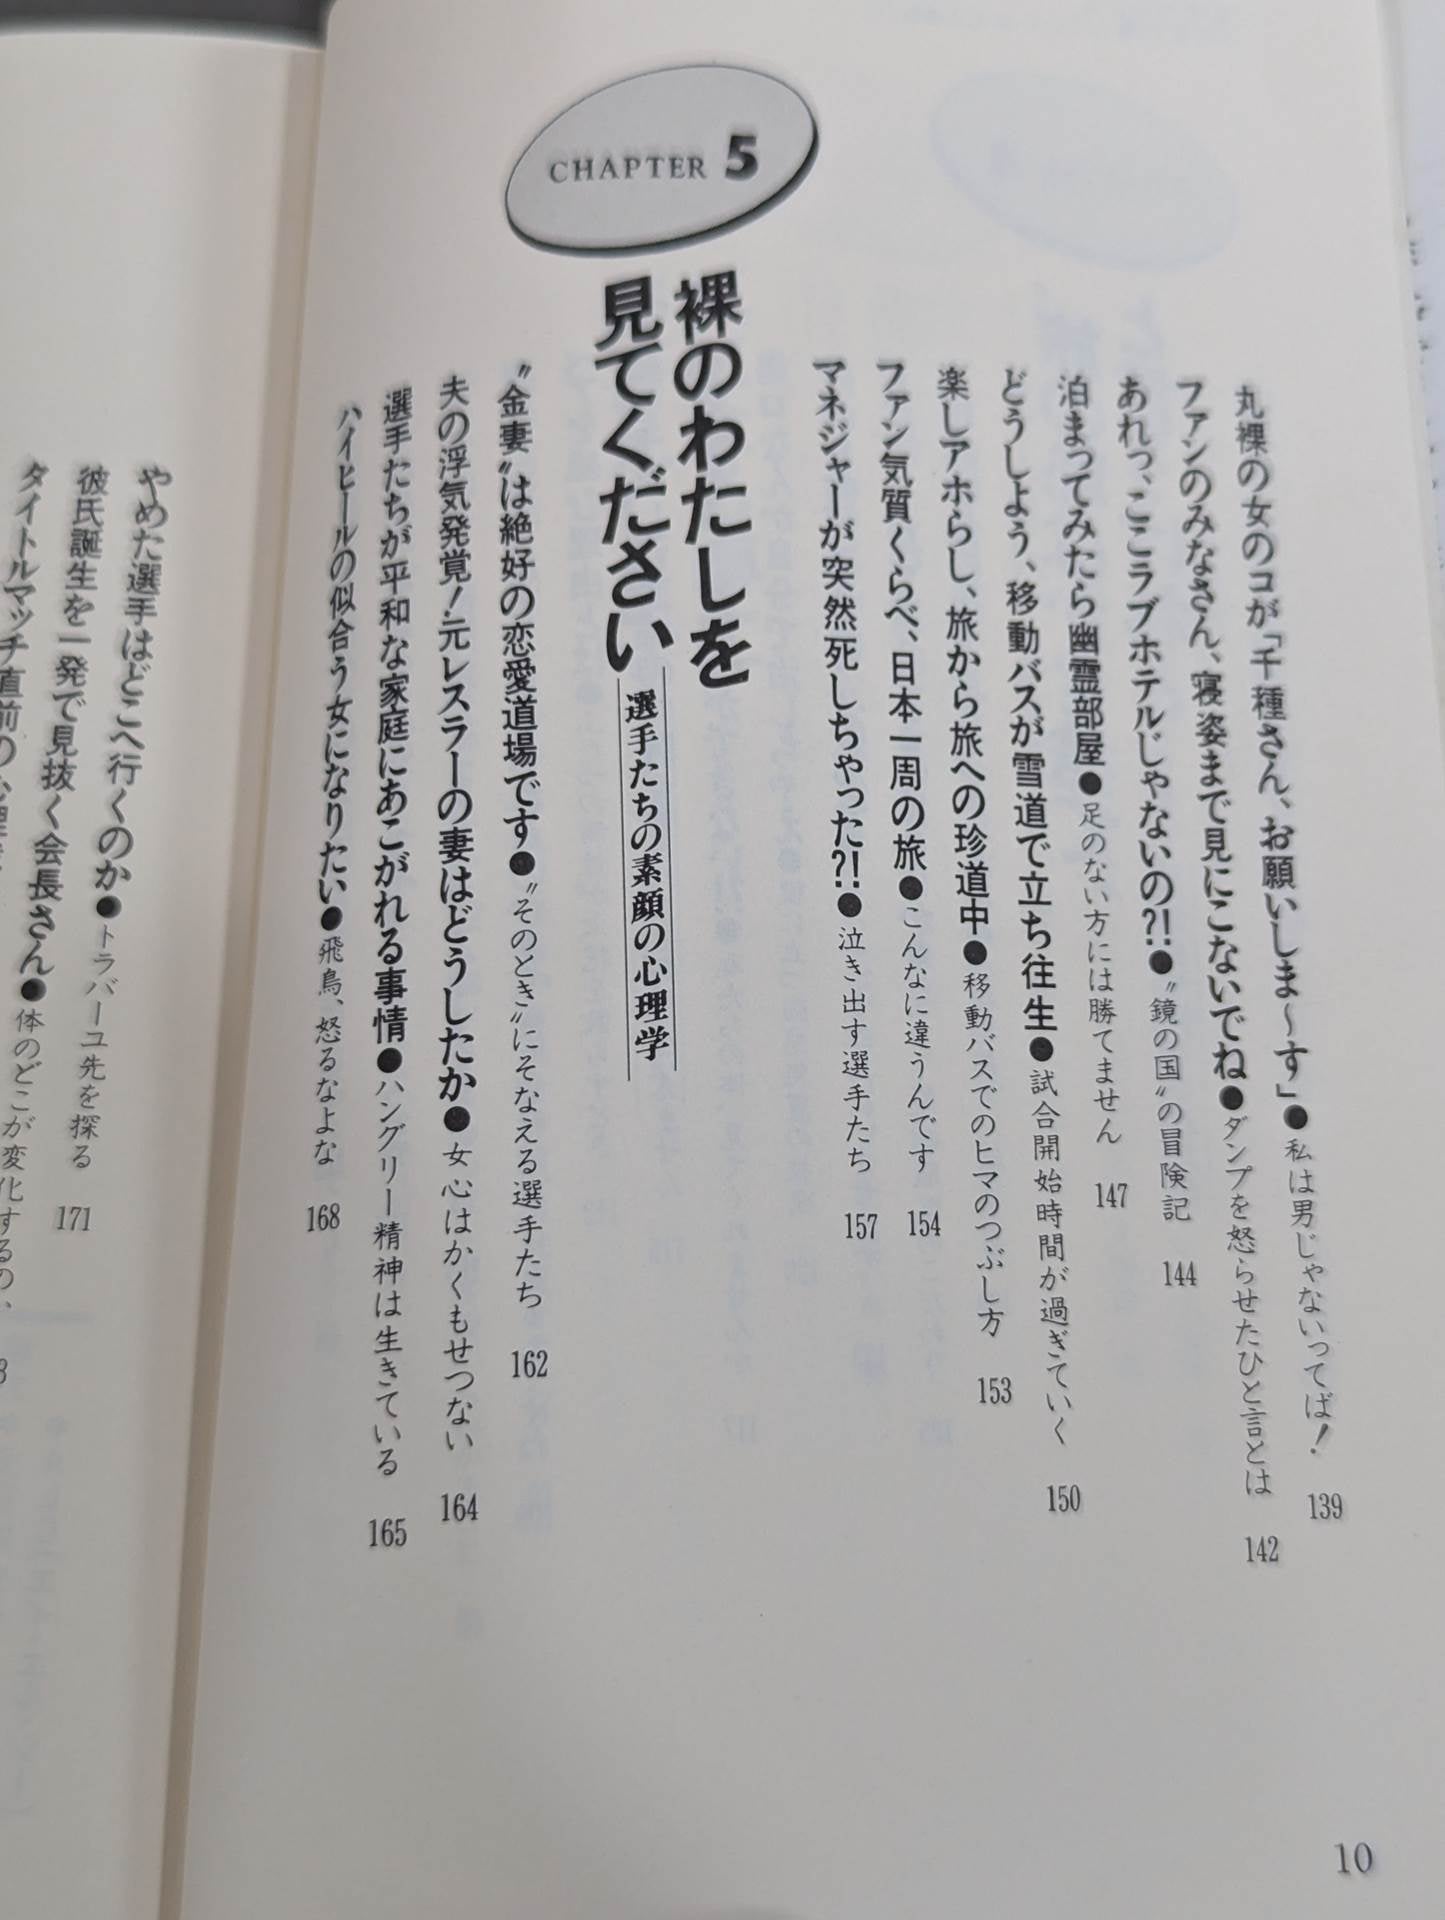 丸裸の女のコが「千種さん、お願いしま〜す」●私は男じゃないってば！ 139
ファンのみなさん、寝姿まで見にこないでね●ダンプを怒らせたひと言とは 142
あれっ、ここラブホテルじゃないの?!●〝鏡の国〟の冒険記 144
泊まってみたら幽霊部屋●足のない方には勝てません 147
どうしよう、移動バスが雪道で立ち往生●試合開始時間が過ぎていく 150
楽しアホらし、旅から旅への珍道中●移動バスでのヒマのつぶし方 153
ファン気質くらべ、日本一周の旅●こんなに違うんです 154
マネジャーが突然死しちゃった?!●泣き出す選手たち 157
CHAPTER 5
裸のわたしを
見てください
選手たちの素顔の心理学
〝金妻〟は絶好の恋愛道場です●〝そのとき〟にそなえる選手たち 162
夫の浮気発覚！元レスラーの妻はどうしたか●女心はかくもせつない 164
選手たちが平和な家庭にあこがれる事情●ハングリー精神は生きている 165
ハイヒールの似合う女になりたい●飛鳥、怒るなよな 168
10
やめた選手はどこへ行くのか●トラバーユ先を探る 171
彼氏誕生を一発で見抜く会長さん●体のどこが変化するの、
タイトルマッチ直前の